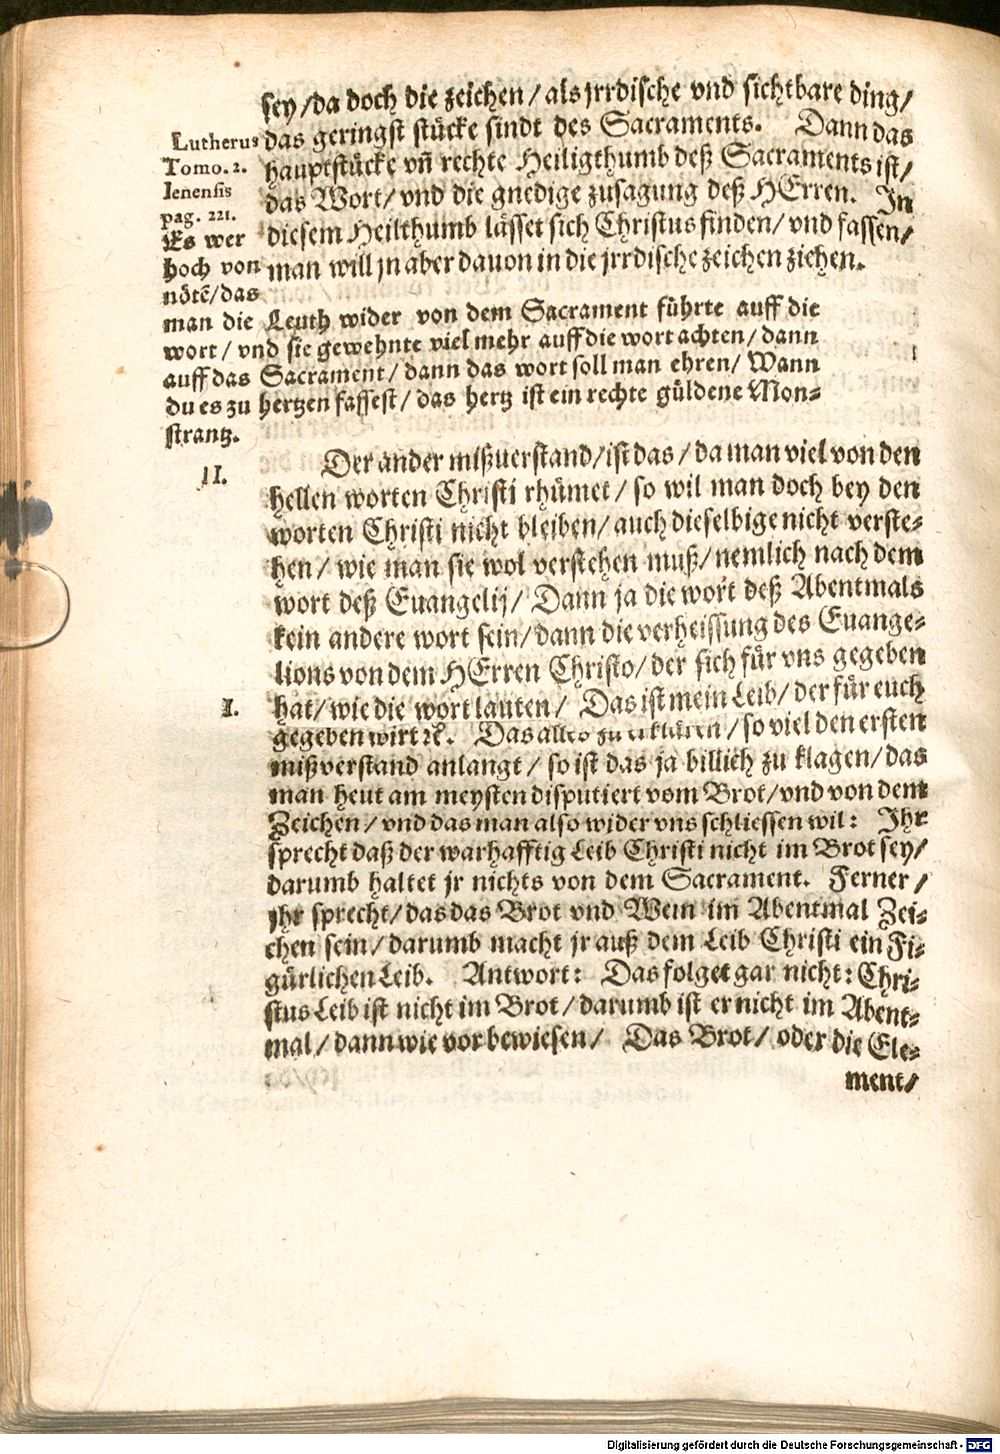 sey/da doch die zeichen/als jrrdische vnd sichtbare ding/
das geringst stücke sindt des Sacraments. Dann das
hauptstücke vn̄ rechte Heiligthumb deß Sacraments ist/
das Wort/vnd die gnedige zusagung deß HErren. In
diesem Heilthumb lässet sich Christus finden/vnd fassen/
man will jn aber dauon in die jrrdische zeichen ziehen.
Lutherus
Tomo. 2.
Ienensis
pag. 221.
Es wer
hoch von
nötē/das
man die Leuth wider von dem Sacrament führte auff die
wort/vnd sie gewehnte viel mehr auff die wort achten/dann
auff das Sacrament/dann das wort soll man ehren/Wann
du es zu hertzen fassest/das hertz ist ein rechte güldene Mon⸗
strantz.
II.
Der ander mißuerstand/ist das/da man viel von den
hellen worten Christi rhümet/so wil man doch bey den
worten Christi nicht bleiben/auch dieselbige nicht verste⸗
hen/wie man sie wol verstehen muß/nemlich nach dem
wort deß Euangelij/Dann ja die wort deß Abentmals
kein andere wort sein/dann die verheissung des Euange⸗
lions von dem HErren Christo/der sich für vns gegeben
hat/wie die wort lauten/Das ist mein Leib/der für euch
I.
gegeben wirt ꝛc̄. Das alles zu erklären/so viel den ersten
mißverstand anlangt/so ist das ja billich zu klagen/das
man heut am meysten disputiert vom Brot/vnd von dem
Zeichen/vnd das man also wider vns schliessen wil: Ihr
sprecht daß der warhafftig Leib Christi nicht im Brot sey/
darumb haltet jr nichts von dem Sacrament. Ferner/
jhr sprecht/das das Brot vnd Wein im Abentmal Zei⸗
chen sein/darumb macht jr auß dem Leib Christi ein Fi⸗
gürlichen Leib. Antwort: Das folget gar nicht: Chri⸗
stus Leib ist nicht im Brot/darumb ist er nicht im Abent⸗
mal/dann wie vor bewiesen/Das Brot/oder die Ele⸗
ment/
Digitalisierung gefördert durch die Deutsche Forschungsgemeinschaft - DFG